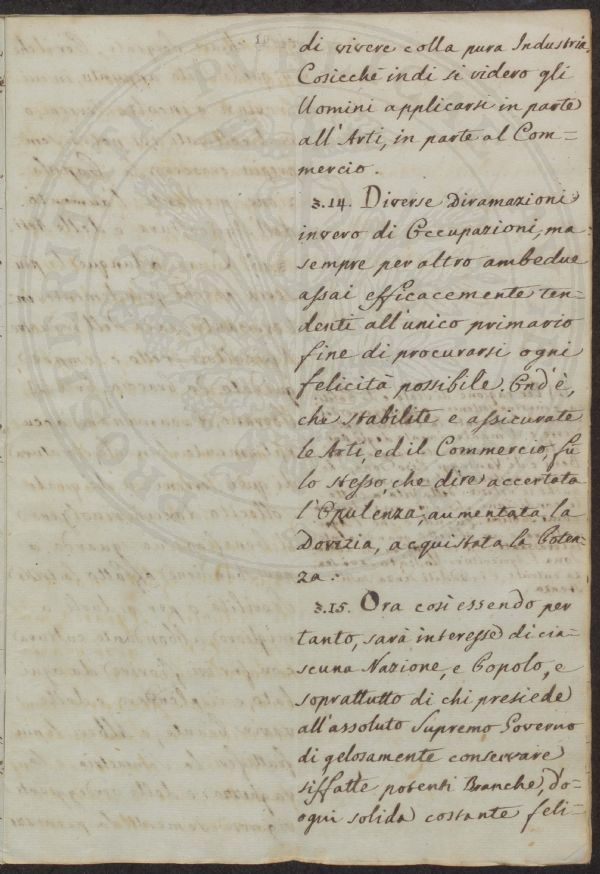 di vivere colla pura Industria.
Cosicchè indi si videro gli
Uomini applicarsi in parte
all'Arti, in parte al Com=
mercio.
§.14. Diverse Diramazioni
invero di Occupazioni, ma
sempre per altro ambedue
assai efficacemente ten=
denti all'unico primario
fine di procurarsi ogni
felicità possibile. Ond'è,
che stabilite e assicurate
le Arti, ed il Commercio, fu
lo stesso, che dire accertata
l'Opulenza, aumentata la
Dovizia, acquistata la Poten=
za.
§.15. Ora così essendo per
tanto, sarà interesse di cia=
scuna Nazione, e Popolo, e
soprattutto di chi presiede
all'assoluto Supremo Governo
di gelosamente conservare
siffatte potenti Branche, d'o=
ogni solida costante feli=